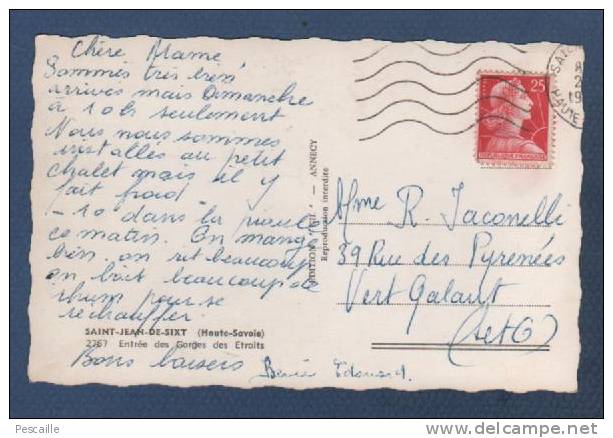 Chère Mame
Sommes très bien
arrivés mais Dimanche
à 10h seulement
Nous nous sommes
installés au petit
chalet mais il y
fait froid
-10 dans la
ce matin. On mange
bien, on rit beaucoup
on boit beaucoup de
rhum pour se
réchauffer.
SAINT-JEAN-DE-SIXT (Haute-Savoie)
2767 Entrée des Gorges des Étroits
Bons baisers
Édouard
— ANNECY
Reproduction interdite
25
REPUBLIQUE FRANCAISE
HAUTE
Mme R. Iaconelli
39 Rue des Pyrénées
Vert Galant
(S et O)
Pescaille
www.delcampe.net